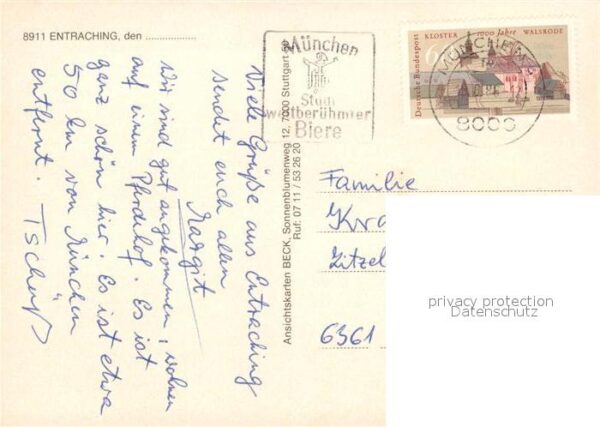 8911 ENTRACHING, den ..................
Viele Grüße aus Entraching
sendet euch allen
Margit
Wir sind gut angekommen, wohnen
auf einem Pferdehof. Es ist
ganz schön hier! Es ist etwa
50 km von München
entfernt. Tschüß
Ansichtskarten BECK, Sonnenblumenweg 12, 7000 Stuttgart 50
Ruf: 07 11 / 53 26 20
München
Stadt
weltberühmter
Biere
MÜNCHEN
8000
Deutsche Bundespost
KLOSTER 1000 Jahre WALSRODE
60
Familie
Kra
Zitzel
6361
privacy protection
Datenschutz